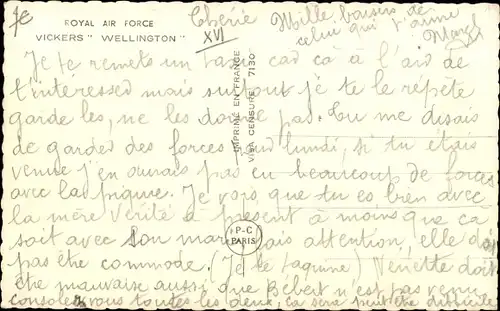 7e
ROYAL AIR FORCE
VICKERS " WELLINGTON "
Chérie
XVI
Mille baisers de
celui qui t'aime
IMPRIMÉ EN FRANCE
VISA CENSURE 7130
P-C
PARIS
Je te remets un cad ca à l'aid de
t'intéressed mais surtout je te le répète
garde les, ne les donne pas. Tu me disais
de garded des forces pour lundi, si tu étais
venue j'en aurais pas eu beaucoup de forces
avec la piqure. Je vois que tu es bien avec
la mère Vérité à présent à moins que ca
soit avec son mari mais attention, elle doit
pas être commode. (Je te taquine) Venette doit
être mauvaise aussi que Bébert n'est pas venu
consolez vous toutes les deux, ca sera peut être difficile